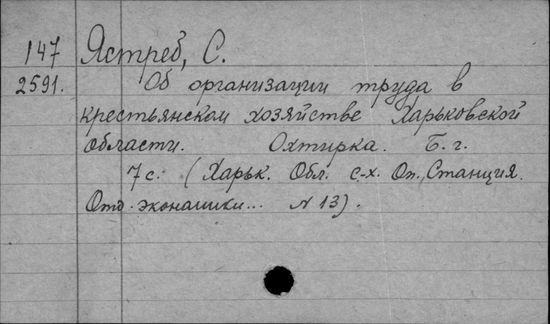 147 Ястреб, С.
2591. Об организации труда в
крестьянском хозяйстве Харьковской
области. Охтирка. Б. г.
7 с. (Харьк. Обл. с-х. Оп. Станция.
Отд. экономики... N 13).